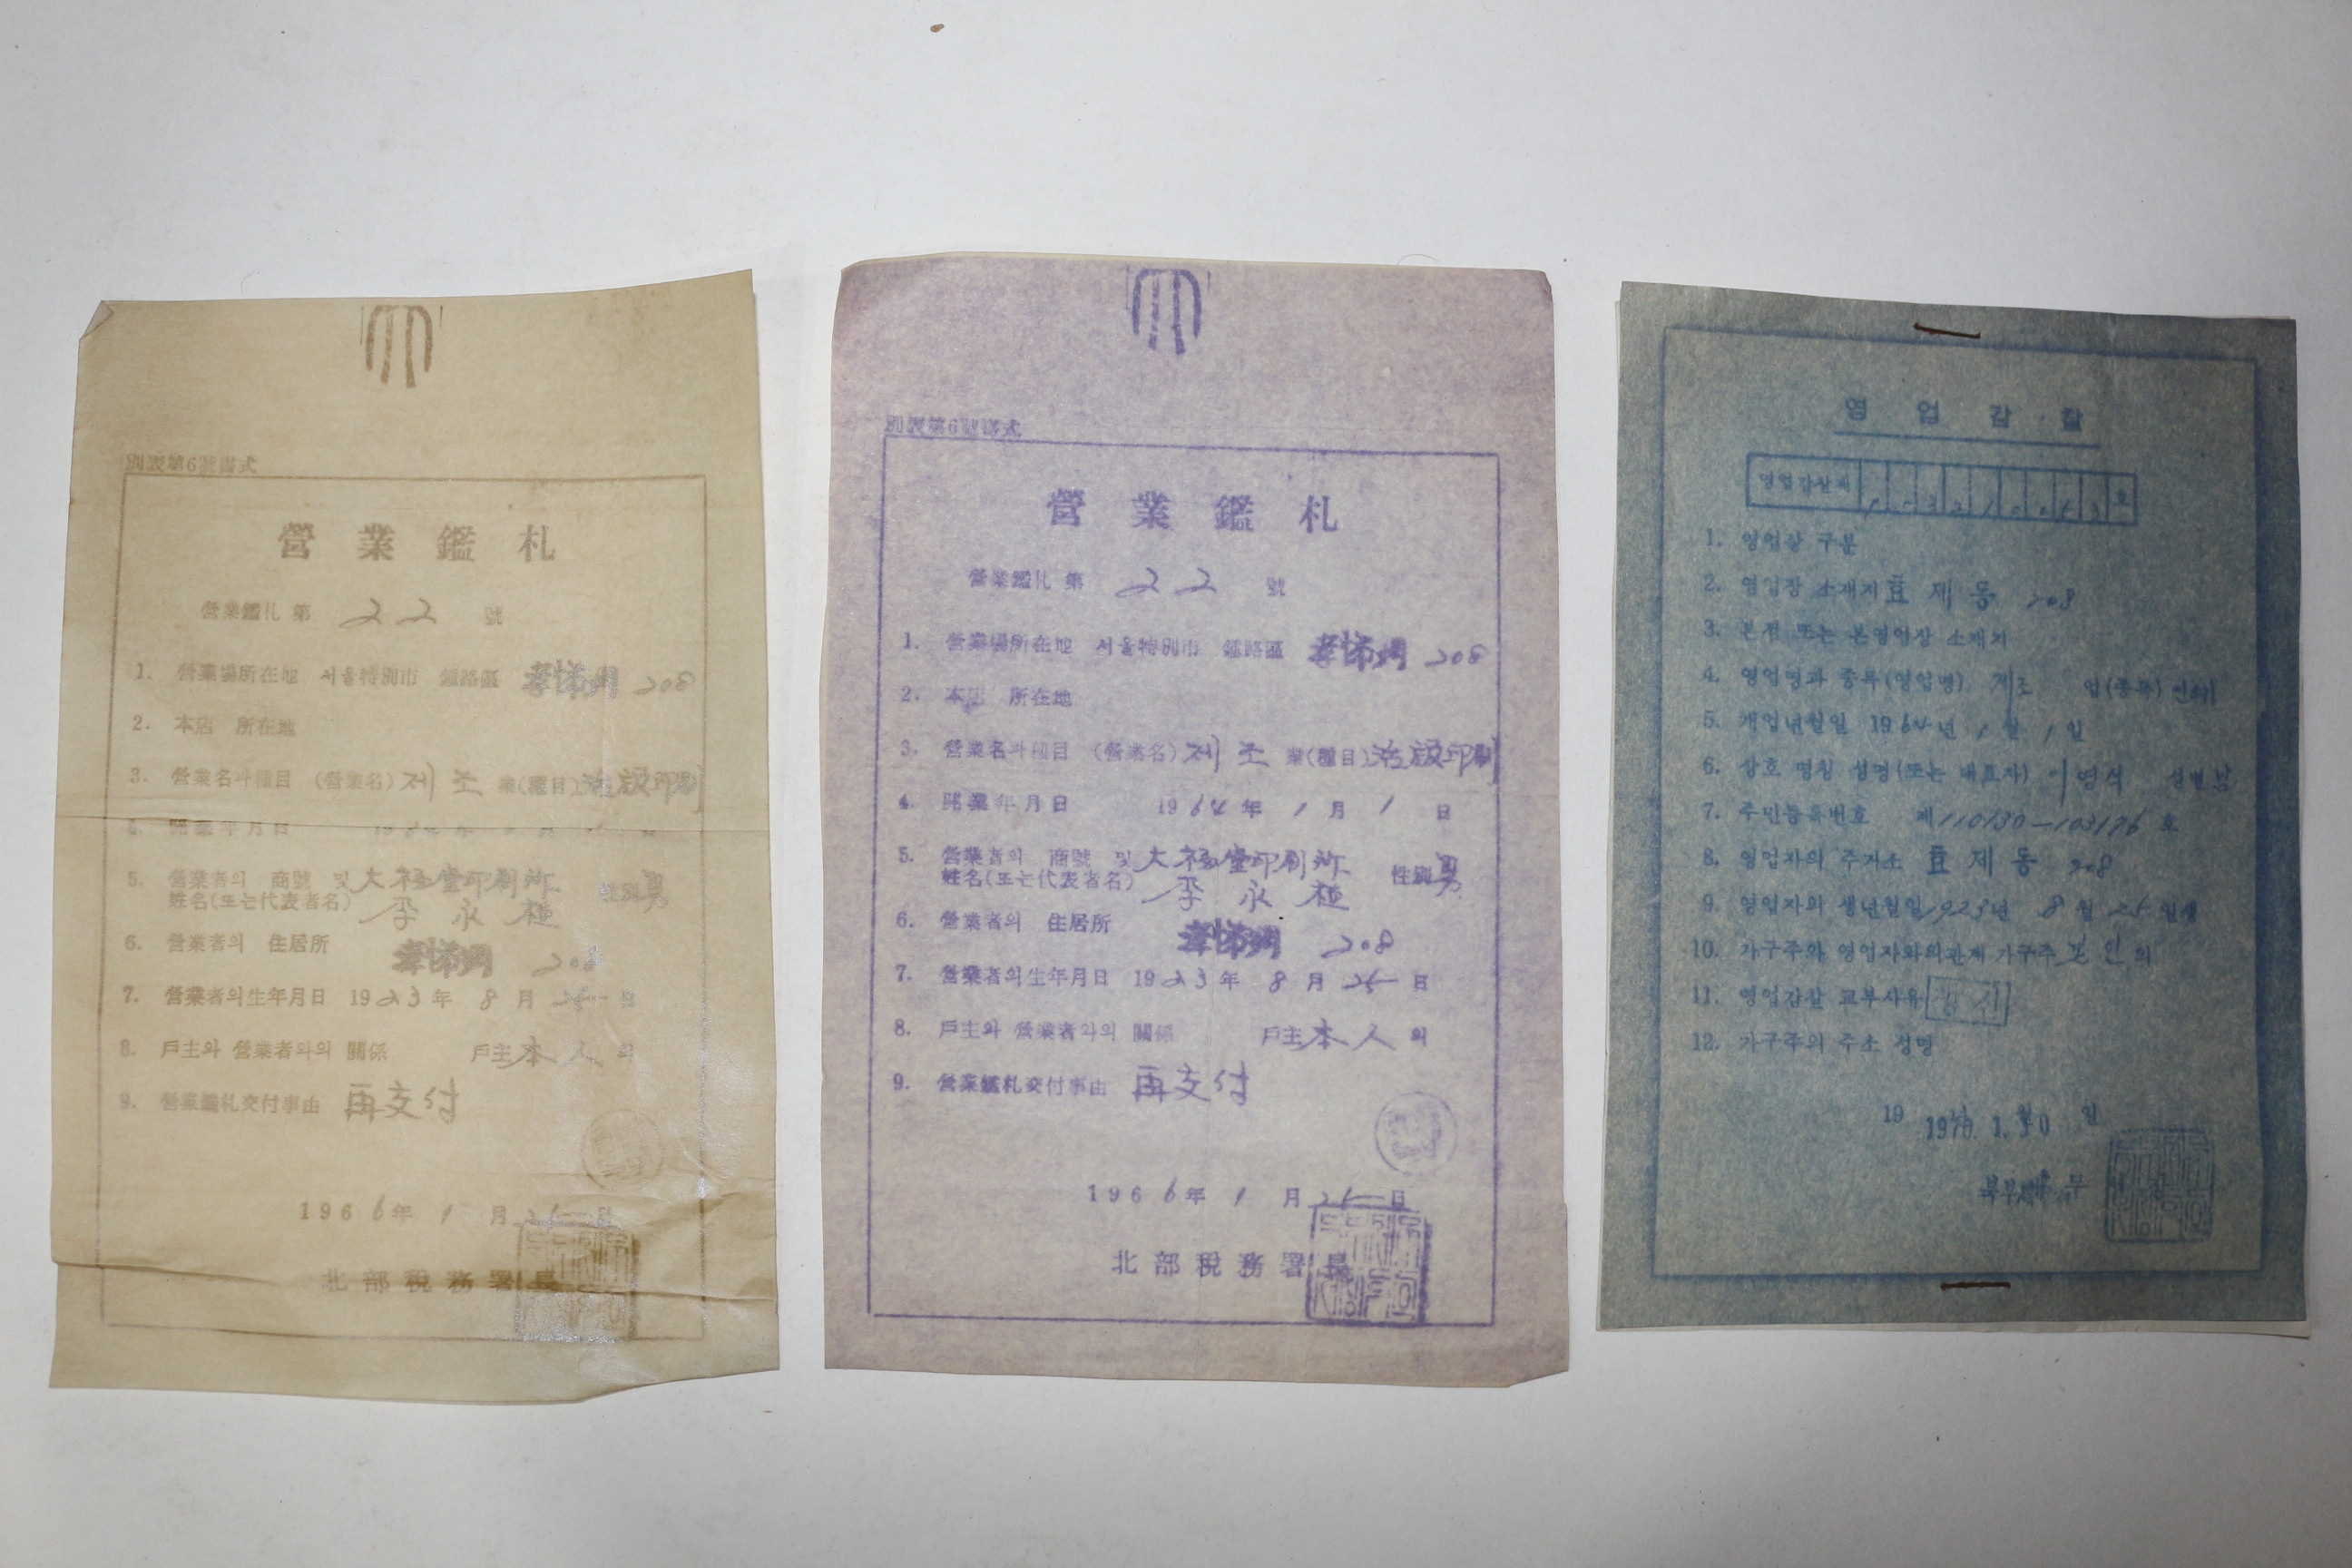 別表第6號書式
營業鑑札
營業鑑札 第 22 號
1. 營業場所在地 서울特別市 鍾路區 孝悌洞 208
2. 本店 所在地
3. 營業名과種目 (營業名) 제조 業(種目) 活版印刷
4. 開業年月日 1964年 1月 1日
5. 營業者의 商號 및 大 印刷所
姓名(또는代表者名) 李永植 性別男
6. 營業者의 住居所 孝悌洞 208
7. 營業者의生年月日 1923年 8月 25日
8. 戶主와 營業者와의 關係 戶主本人의
9. 營業鑑札交付事由 再交付
1966年 1月 25日
北部稅務署長
別表第6號書式
營業鑑札
營業鑑札 第 22 號
1. 營業場所在地 서울特別市 鍾路區 孝悌洞 208
2. 本店 所在地
3. 營業名과種目 (營業名) 제조 業(種目) 活版印刷
4. 開業年月日 1964年 1月 1日
5. 營業者의 商號 및 大 印刷所
姓名(또는代表者名) 李永植 性別男
6. 營業者의 住居所 孝悌洞 208
7. 營業者의生年月日 1923年 8月 25日
8. 戶主와 營業者와의 關係 戶主本人의
9. 營業鑑札交付事由 再交付
1966年 1月 25日
北部稅務署長
영업감찰
영업감찰제 호
1. 영업장 구분
2. 영업장 소재지 효제동 208
3. 본점 또는 본영업장 소재지
4. 영업명과 종목(영업명) 제조 업(종목) 인쇄
5. 개업년월일 1964년 1월 1일
6. 상호 명칭 성명(또는 대표자) 이영식 성별남
7. 주민등록번호 제110130-103176 호
8. 영업자의 주거소 효제동 208
9. 영업자의 생년월일 1923년 8월 25일생
10. 가구주와 영업자와의관계 가구주 본인의
11. 영업감찰 교부사유 갱신
12. 가구주의 주소 성명
19 년 월 일
1970. 1. 30